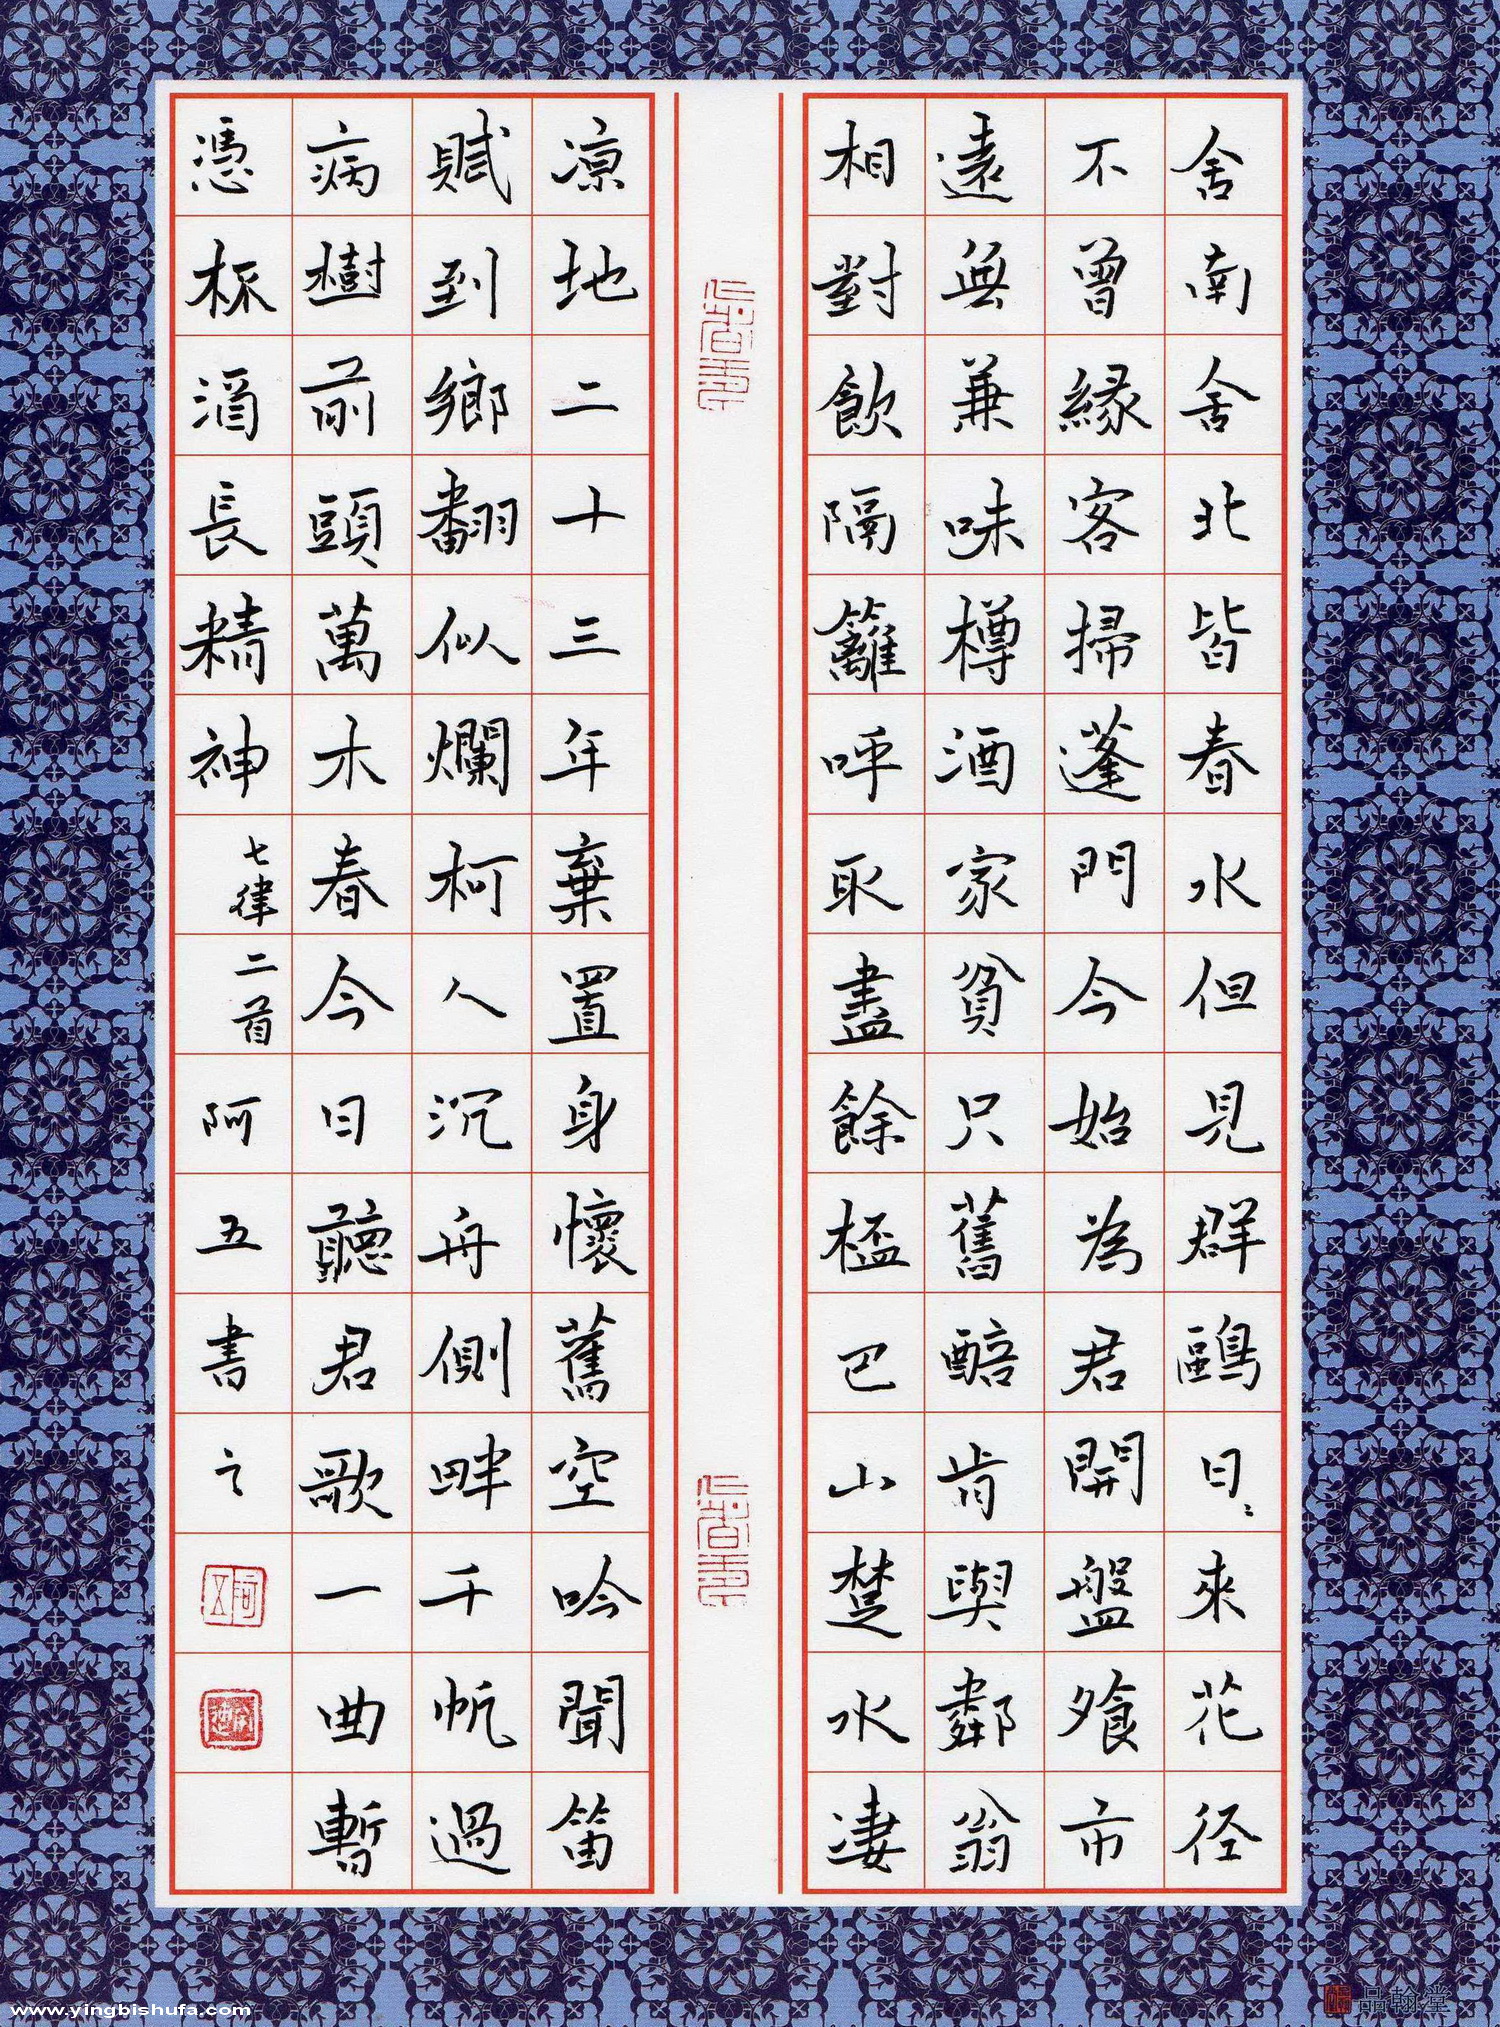 舍南舍北皆春水但見群鷗日〻来花径
不曾緣客掃蓬門今始為君開盤飧市
遠無兼味樽酒家貧只舊醅肯與鄰翁
相對飲隔籬呼取盡餘杯巴山楚水凄
凉地二十三年棄置身懷舊空吟聞笛
賦到鄉翻似爛柯人沉舟側畔千帆過
病樹前頭萬木春今日聽君歌一曲暫
憑杯酒長精神七律二首阿五書之
阿五
www.yingbishufa.com
品翰堂